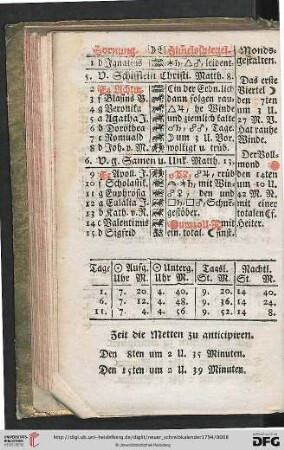 Hornung. Himmelsspiegel. Monds-
1 d Ignatius leident. gestalten.
5. V. Schifflein Christi. Matth. 8.
Das erste
2 Ein der Erdn. lich Viertel
3 f Blasius B. dann folgen rau- den 7ten
4 g Veronika he Winde um 3 U.
5 a Agatha J. und ziemlich kalte 27 M. V.
6 b Dorothea Tage. hat rauhe
7 c Romuald um 3 U. Vor. Winde.
8 d Joh. v. M. völligst trüb Der Voll-
6. V. g. Samen u. Unk. Matth. 13.
mond
9 Apoll. J. trüb den 14ten
10 f Scholastik. mit Win- um 10 U.
11 g Euphrosia den und 42 M. N.
12 a Eulalia J. Schnee mit einer
13 b Kath. v. R. gestöber. totalen Ef.
14 c Valentinus mit Heiter.
15 d Sigfrid ein total. Efinst.
Tage Aufg. Unterg. Tagsl. Nachtl.
Uhr M. Uhr M. St. M. St. M.
1. 7. 20. 4. 40. 9. 20. 14 40.
6. 7. 12. 4. 48. 9. 36. 14 24.
11. 7. 4. 4. 56. 9. 52. 14 8.
Zeit die Metten zu anticipiren.
Den 8ten um 2 U. 35 Minuten.
Den 15ten um 2 U. 39 Minuten.
UNIVERSITÄTS-
BIBLIOTHEK
HEIDELBERG
http://digi.ub.uni-heidelberg.de/diglit/neuer_schreibkalender1794/0008
© Universitätsbibliothek Heidelberg
DFG